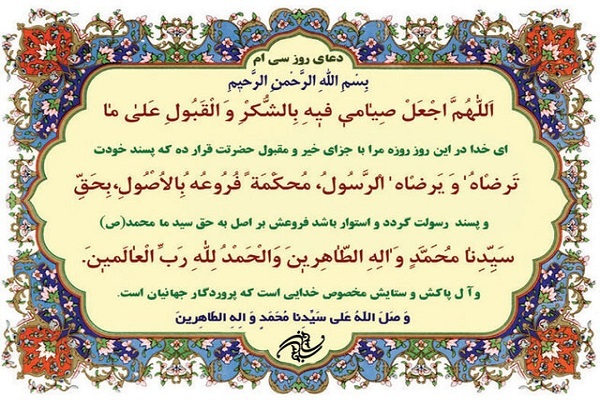 دعای روز سی ام
بِسْمِ اللهِ الرَّحْمنِ الرَّحیمِ
اَللّهُمَّ اجْعَلْ صِیامی فیهِ بِالشُّکرِ وَ الْقَبُولِ عَلیٰ ما
ای خدا در این روز روزه مرا با جزای خیر و مقبول حضرتت قرار ده که پسند خودت
تَرضاهُ وَ یَرضاهُ الرَّسُولُ، مُحکَمَةً فُروعُهُ بِالاُصُولِ،بِحَقِّ
و پسند رسولت گردد و استوار باشد فروعش بر اصل به حق سید ما محمد(ص)
سَیِّدِنا مُحَمَّدٍ وَ الِهِ الطّاهِرینَ وَ الْحَمْدُ لِلهِ رَبِّ الْعالَمینَ.
و آل پاکش و ستایش مخصوص خدایی است که پروردگار جهانیان است.
وَ صَلَّ اللهُ عَلی سَیِّدِنا مُحَمَّدٍ وَ الِهِ الطّاهِرینَ